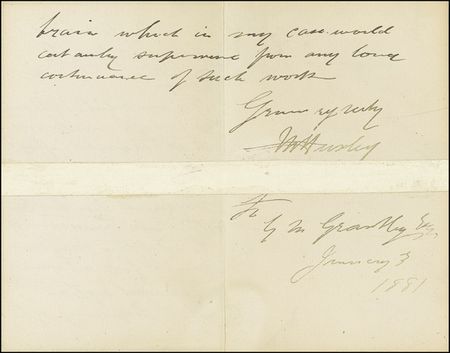 brain which in my case would
certainly supervene from any long
continuance of such work
Yours very truly
TH Huxley
To
G M Esq
January 3
1881